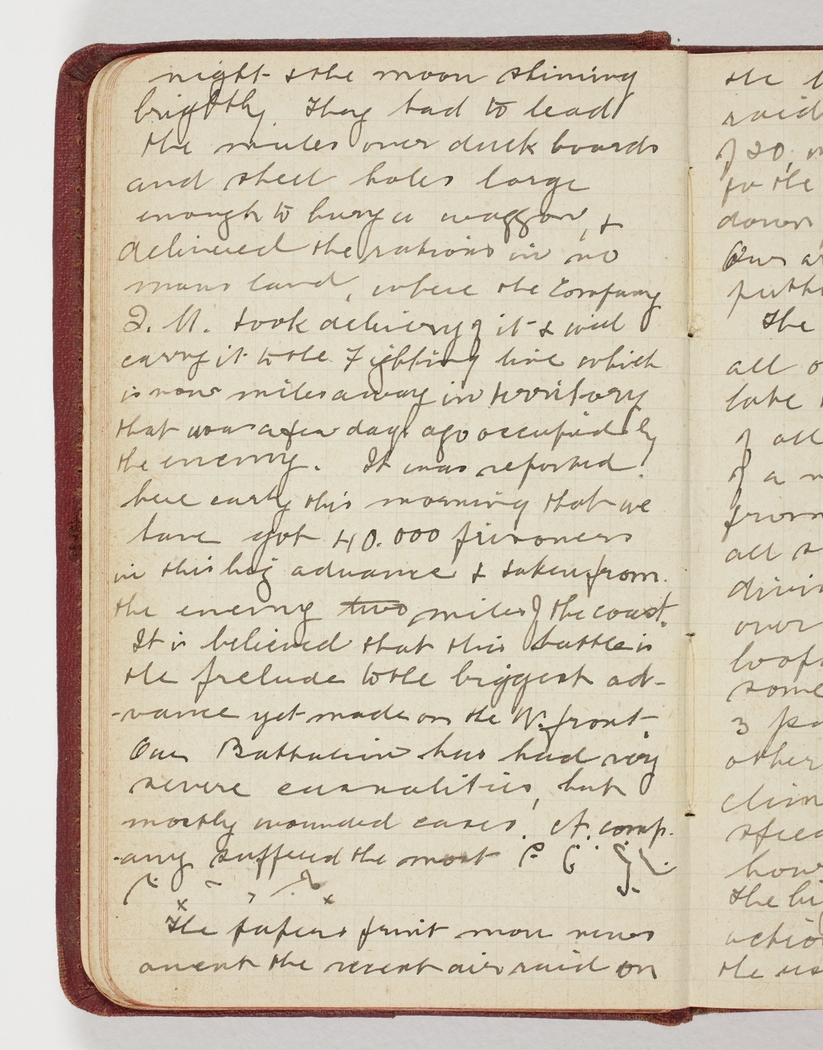 night & the moon shining
brightly. They had to lead
the mules over duck boards
and shell holes large
enough to bury a waggon, &
delivered the rations in no
mans land, where the Company
Q.M. took delivery of it & will
carry it to the Fighting line which
is now miles away in territory
that was a few days ago occupied by
the enemy. It was reported
here early this morning that we
have got 40.000 prisoners
in this big advance & taken from
the enemy two miles of the coast.
It is believed that this battle is
the prelude to the biggest ad-
-vance yet made on the W. front
Our Battalion has had very
severe casualities, but
mostly wounded cases. A. comp-
-any suffered the most
x x
The papers print more news
anent the recent air raid on
the
raid
of 20
to the
down
Our
The
all
late
of all
of a
from
all
over
some
3
other
how
the
the